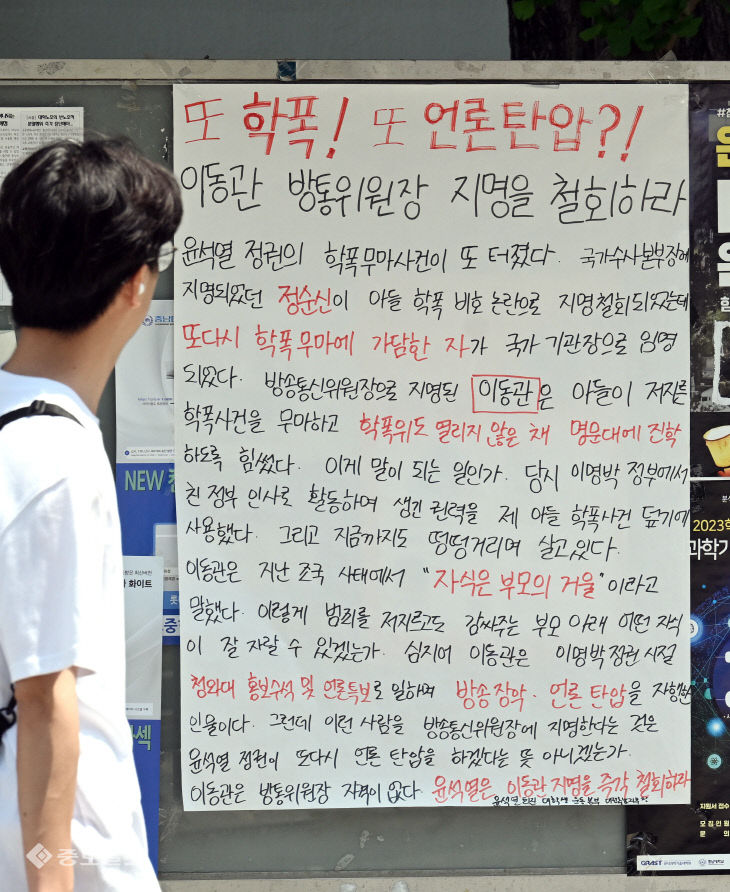 또 학폭! 또 언론탄압?!
이동관 방통위원장 지명을 철회하라
윤석열 정권의 학폭무마사건이 또 터졌다. 국가수사본부장에
지명되었던 정순신이 아들 학폭 비호 논란으로 지명철회되었는데
또다시 학폭무마에 가담한 자가 국가기관장으로 임명
되었다. 방송통신위원장으로 지명된 이동관은 아들이 저지른
학폭사건을 무마하고 학폭위도 열리지 않은 채 명문대에 진학
하도록 힘썼다. 이게 말이 되는 일인가. 당시 이명박 정부에서
친정부 인사로 활동하며 생긴 권력을 제 아들 학폭사건 덮기에
사용했다. 그리고 지금까지도 떵떵거리며 살고있다.
이동관은 지난 조국 사태에서 "자식은 부모의 거울"이라고
말했다. 이렇게 범죄를 저지르고도 감싸주는 부모 아래 어떤 자식
이 잘 자랄 수 있겠는가. 심지어 이동관은 이명박정권 시절
청와대 홍보수석 및 언론특보로 일하며 방송장악·언론탄압을 자행한
인물이다. 그런데 이런 사람을 방송통신위원장에 지명한다는 것은
윤석열 정권이 또다시 언론 탄압을 하겠다는 뜻 아니겠는가.
이동관은 방통위원장 자격이 없다. 윤석열은 이동관 지명을 즉각 철회하라
윤석열 퇴진 대학생 운동본부
NEW
화이트
2023학
과학기
지원서 접수
모집인원
문의
GRAST
중도일보